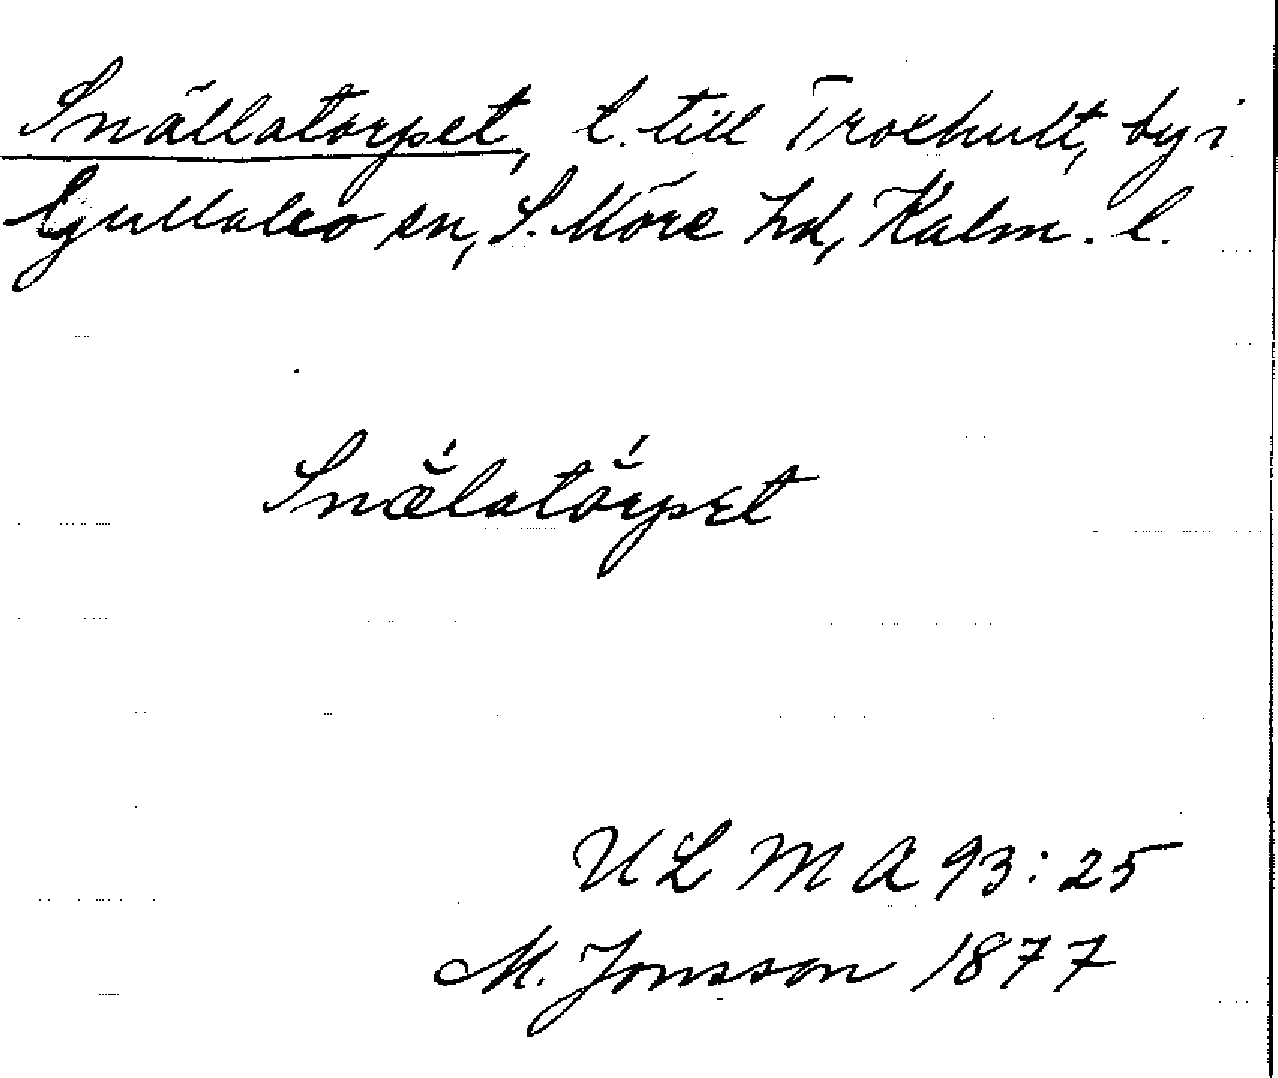 Snällatorpet, t. till Troehult, by i
Gullabo sn, S. Möre hd, Kalm. l.
Snælatörpet
ULMA 93:25
M. Jonsson 1877